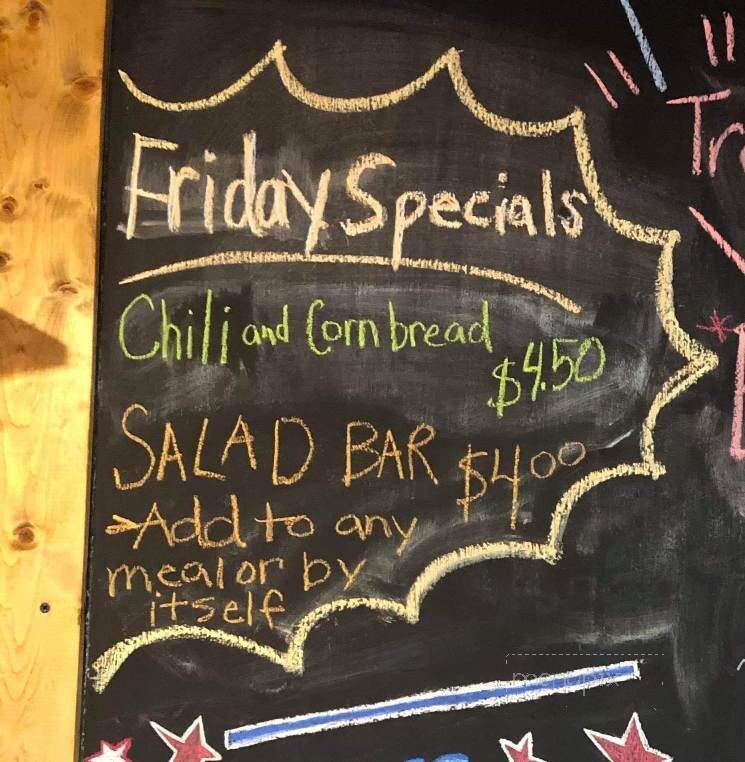 Friday Specials
Chili and Cornbread
$4.50
SALAD BAR $4.00
Add to any
meal or by
itself
Tr